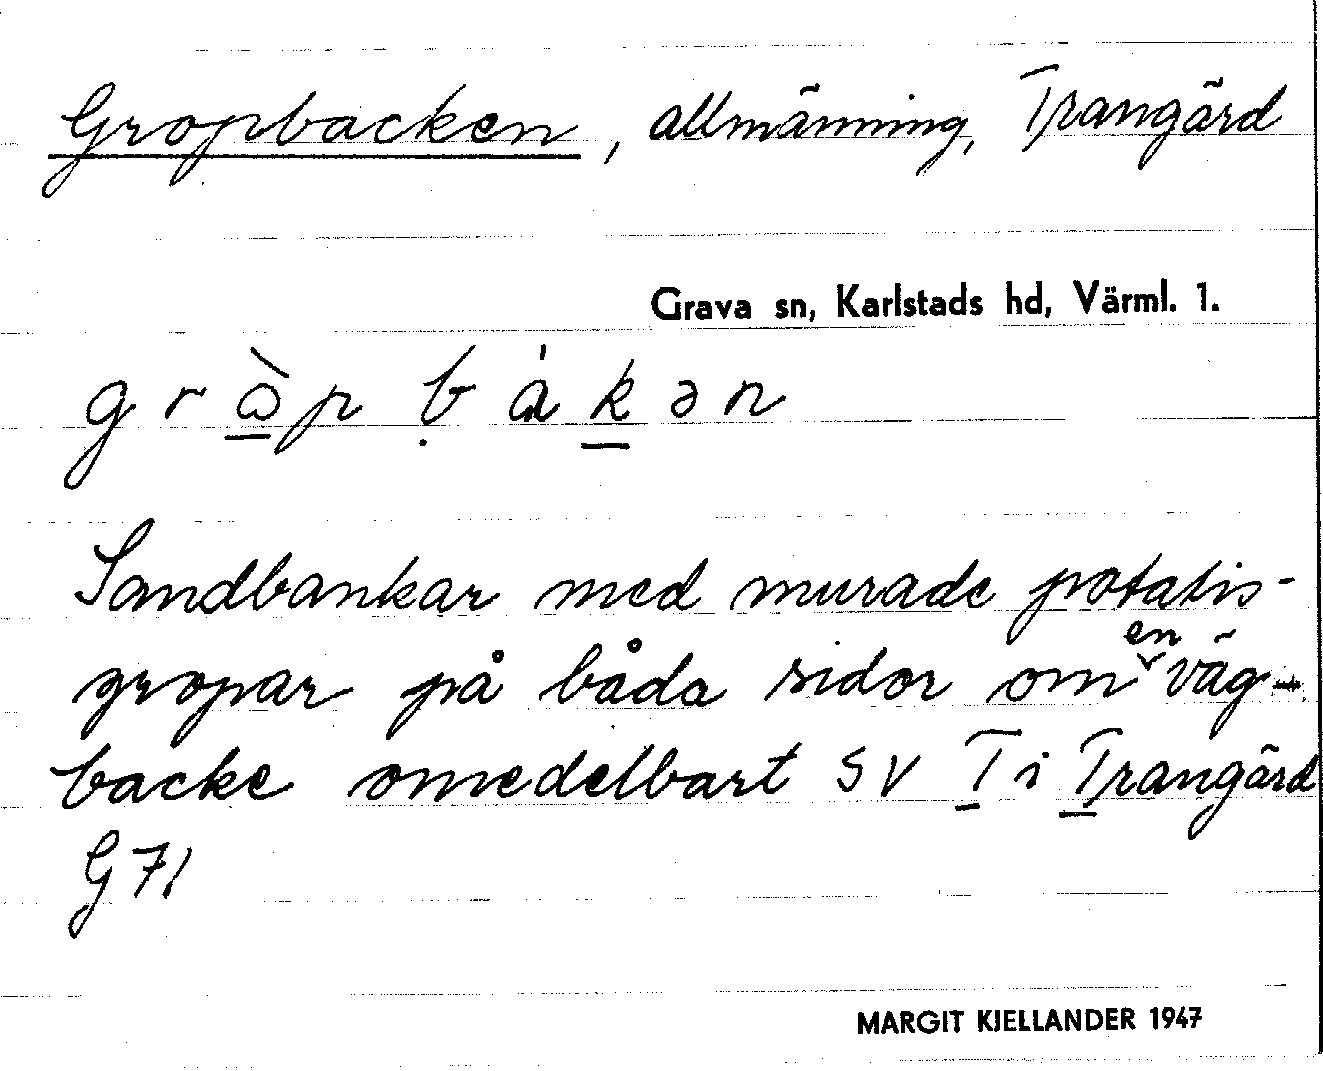 Gropbacken, allmänning, Trangärd
Grava sn, Karlstads hd, Värml. 1.
grὼ̠p ḅák̠ən
Sandbankar med murade potatis-
gropar på båda sidor om en väg-
backe omedelbart SV T i Trangärd
G 71
MARGIT KJELLANDER 1947